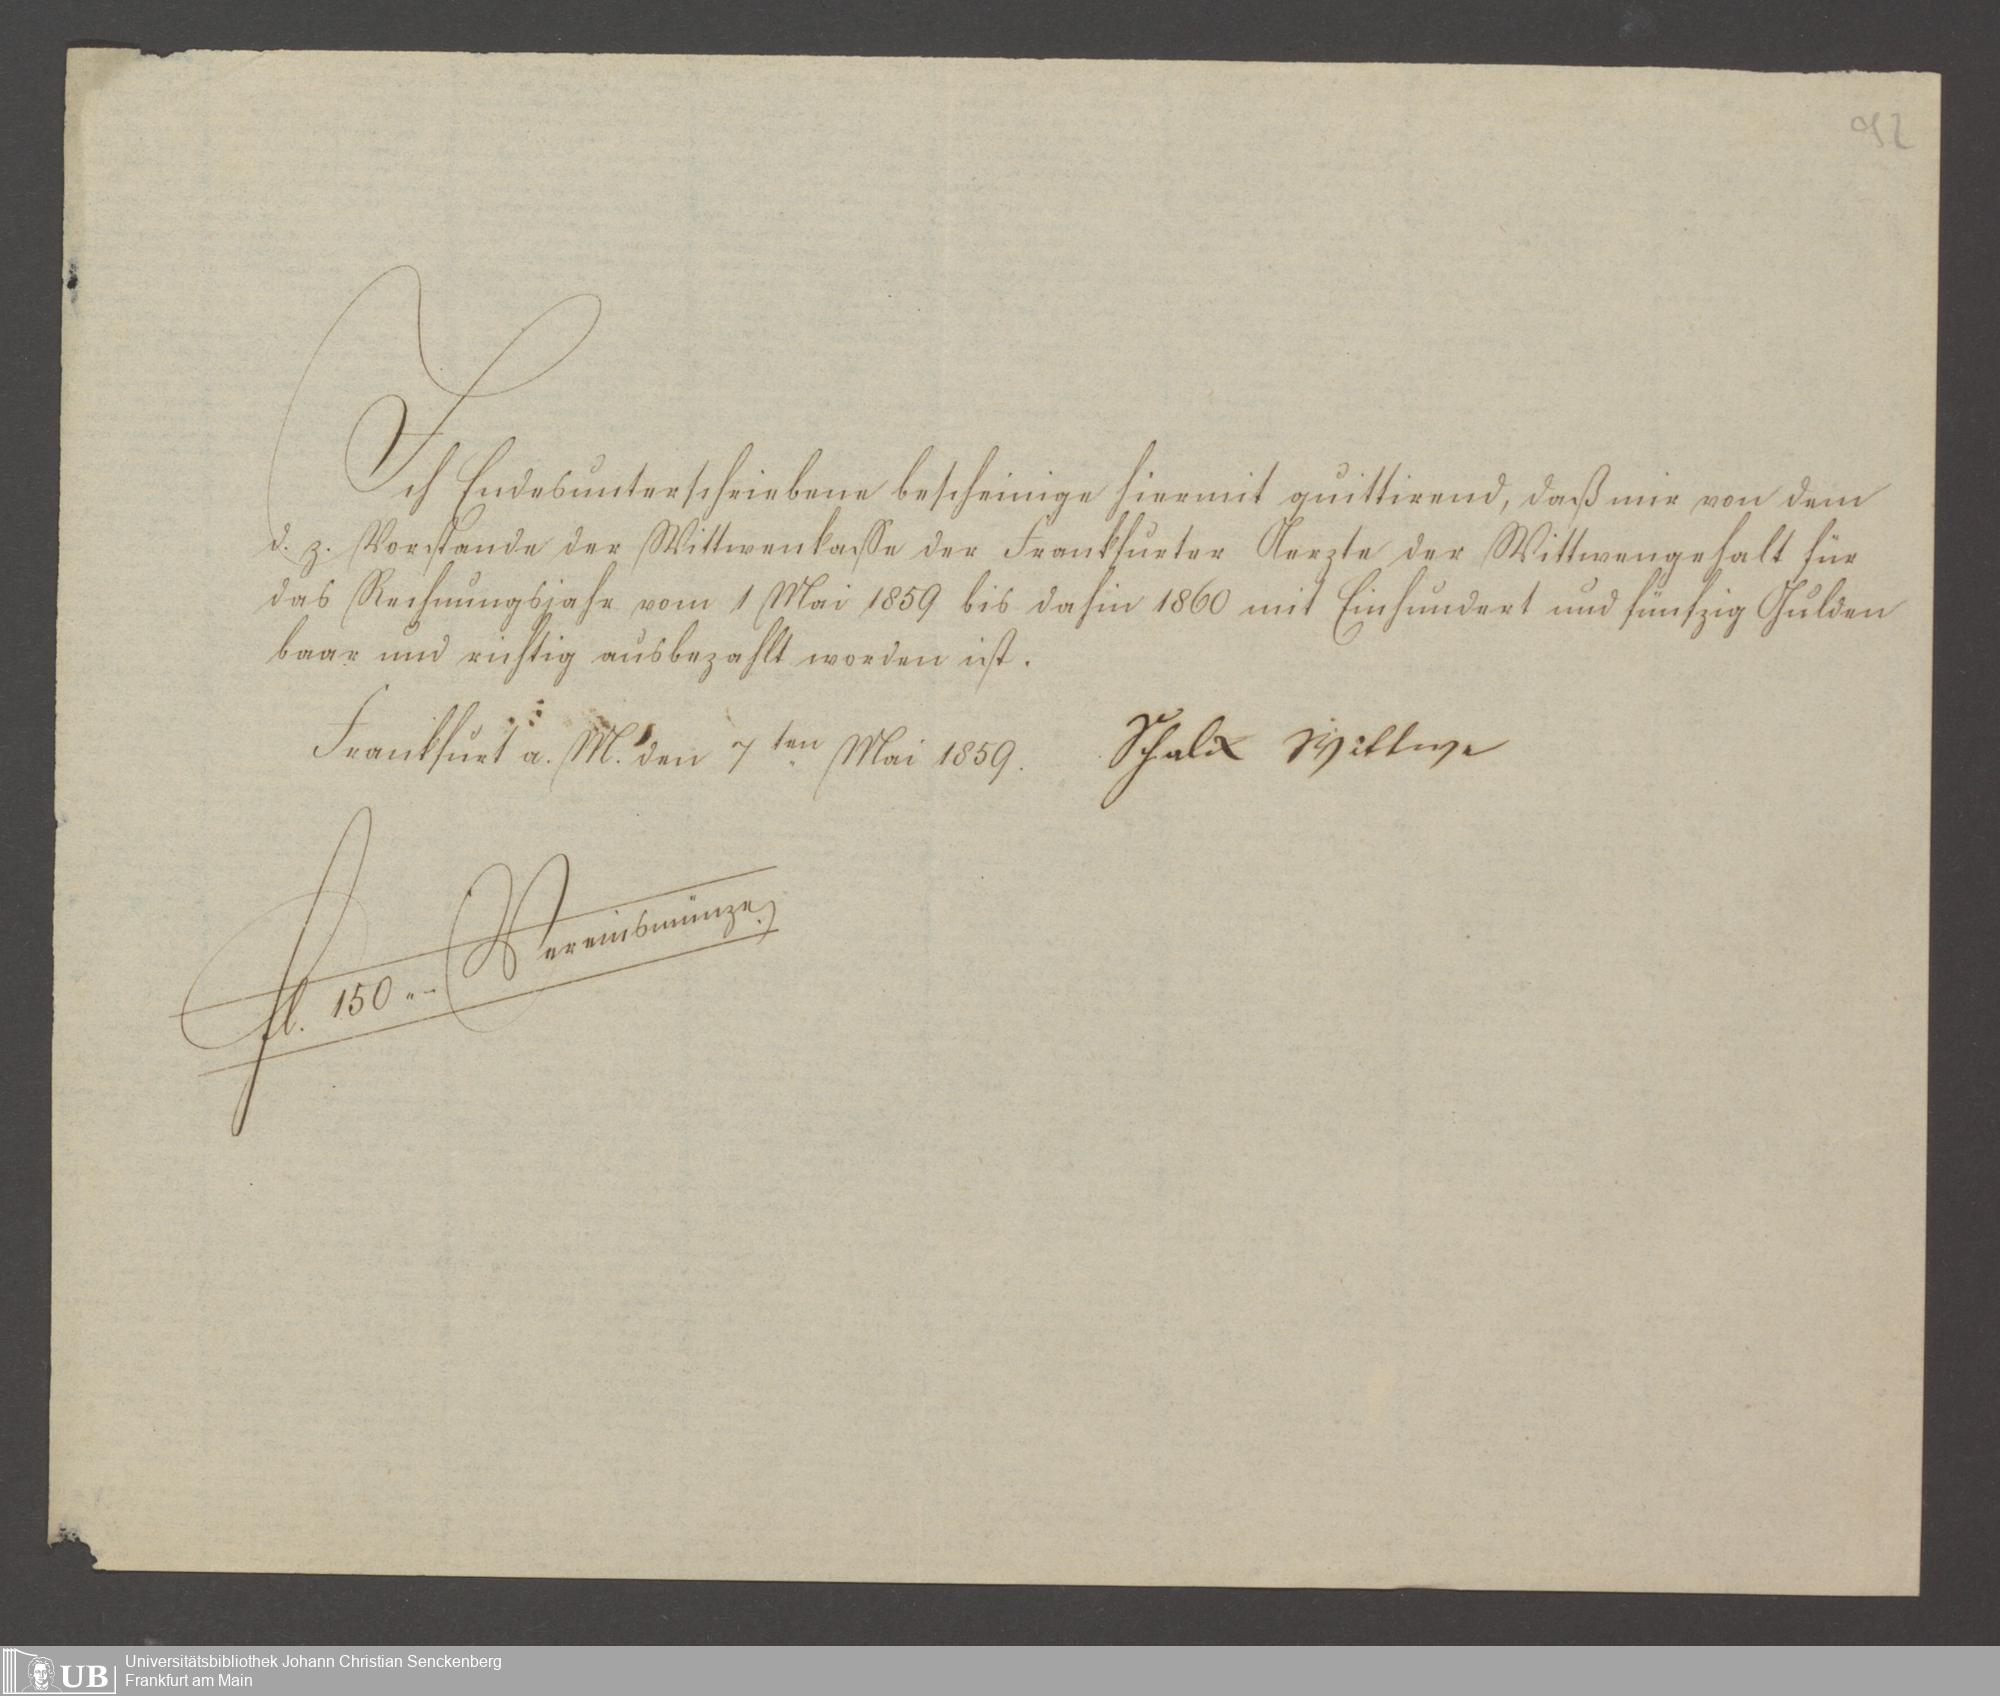 92
Ich Endesunterschriebene bescheinige hiermit quittirend, daß mir von dem
d. z. Vorstande der Wittwenkasse der Frankfurter Aerzte der Wittwengehalt für
das Rechnungsjahr vom 1 Mai 1859 bis dahin 1860 mit Einhundert und fünfzig Gulden
baar und richtig ausbezahlt worden ist.
Frankfurt a. M. den 7ten Mai 1859. Schalk Wittwe
fl. 150 „– Vereinsmünze.
UB Universitätsbibliothek Johann Christian Senckenberg
Frankfurt am Main